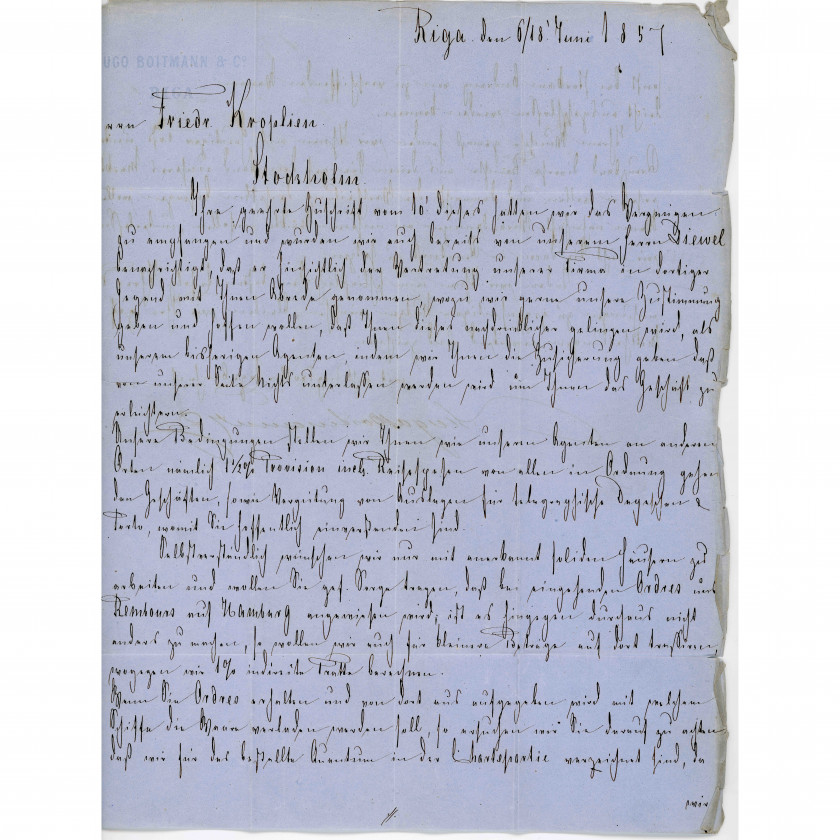 Riga den 6/18' Juni 1857.
UGO BOITMANN & Co
RIGA
rrn Friedr. Kroplien.
Stockholm.
Ihre geehrte Zuschrift vom 10' dieses hatten wir das Vergnügen
zu empfangen und wurden wir auch bereits von unserem Herrn Siewel
benachrichtigt, daß er hinsichtlich der Vertretung unserer Firma in dortiger
Gegend mit Ihnen Abrede genommen, wozu wir gerne unsere Zustimmung
geben und hoffen wollen, daß Ihnen dieses nachdrücklicher gelingen wird, als
unserem bisherigen Agenten, indem wir Ihnen die Zusicherung geben daß
von unserer Seite Nichts unterlassen werden wird um Ihnen das Geschäft zu
erleichtern.
Unsere Bedingungen stellen wir Ihnen wie unsern Agenten an anderen
Orten nämlich 1½% Provision incl. Reisespesen von allen in Ordnung gehen
den Geschäften, sowie Vergütung von Auslagen für telegraphische Depeschen &
Porto, womit Sie hoffentlich einverstanden sind.
Selbstverständlich wünschen wir nur mit anerkannt soliden Häusern zu
arbeiten und wollen Sie gef. Sorge tragen, daß bei eingehenden Ordres uns
Rembours auf Hamburg angewiesen wird, ist es hingegen durchaus nicht
anders zu machen, so wollen wir auch für kleinere Beträge auf dort trassiren
wogegen wir 1% indirecte Tratte berechnen.
Wenn Sie Ordres erhalten und von dort aus aufgegeben wird mit welchem
Schiffe die Waare verladen werden soll, so ersuchen wir Sie darauf zu achten
daß wir für das bestellte Quantum in der Chartepartie verzeichnet sind, da
wir